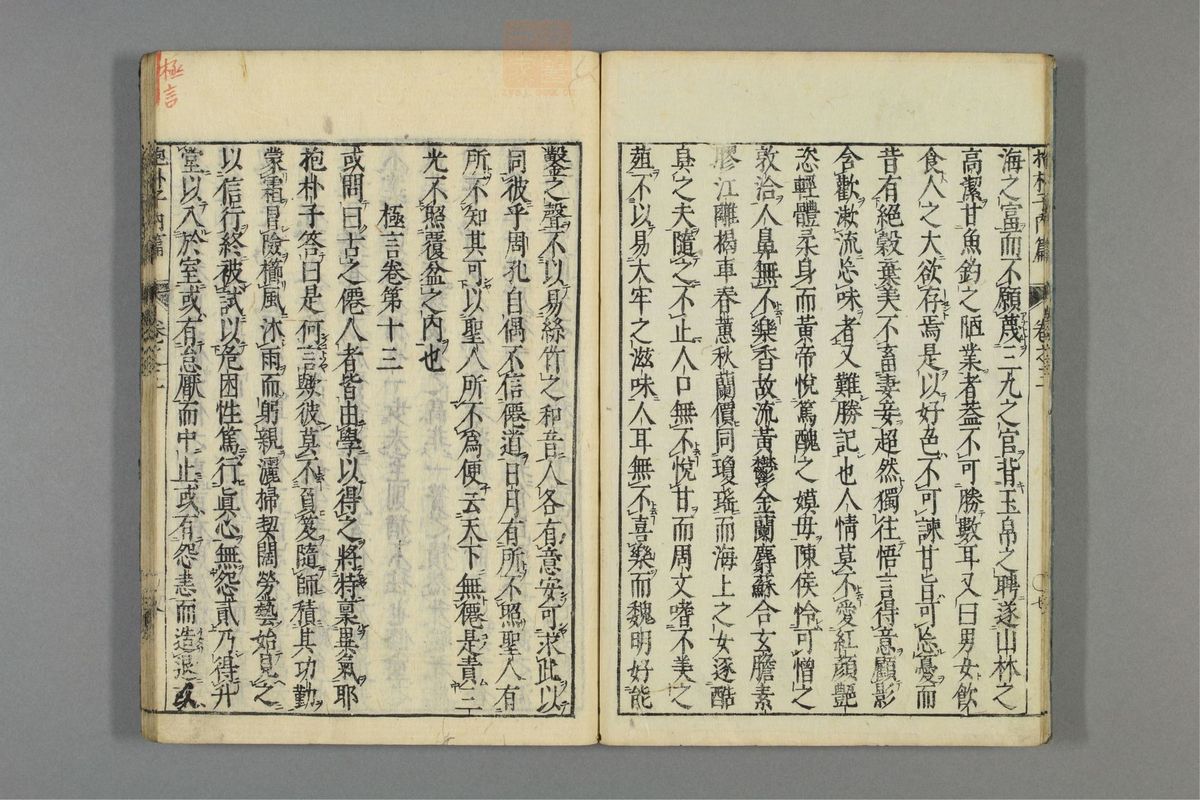 抱朴子内篇 卷之十二
海之富而不顧蔑三九之官背玉帛之聘遂山林之
高潔甘魚釣之陋業者蓋不可勝數耳又曰男女飲
食人之大欲存焉是以好色不可諫甘旨可忘憂而
昔有絕穀棄美不畜妻妾超然獨往悟言得意顧影
含歡漱流忘味者又難勝記也人情莫不愛紅顏艷
恣輕體柔身而黃帝悅篤醜之嫫母陳侯怜可憎之
敦洽人鼻無不樂香故流黃鬱金蘭麝蘇合玄膽素
膠江離揭車春蕙秋蘭價同瓊瑤而海上之女逐酷
臭之夫隨之不止人口無不悅甘而周文嗜不美之
葅不以易大牢之滋味人耳無不喜樂而魏明好能
鑿之聲不以易絲竹之和音人各有意安可求此以
同彼乎周孔自偶不信僊道日月有所不照聖人有
所不知其可以聖人所不爲便云天下無僊是責三
光不照覆盆之內也
極言卷第十三
或問曰古之僊人者皆由學以得之將特稟異氣耶
抱朴子答曰是何言歟彼莫不負笈隨師積其功勤
蒙霜冒險櫛風沐雨而躬親灑掃契闊勞藝始見之
以信行終被試以危困性篤行眞心無怨貳乃得升
堂以入於室或有怠厭而中止或有怨恚而造退
抱朴子内篇
極言